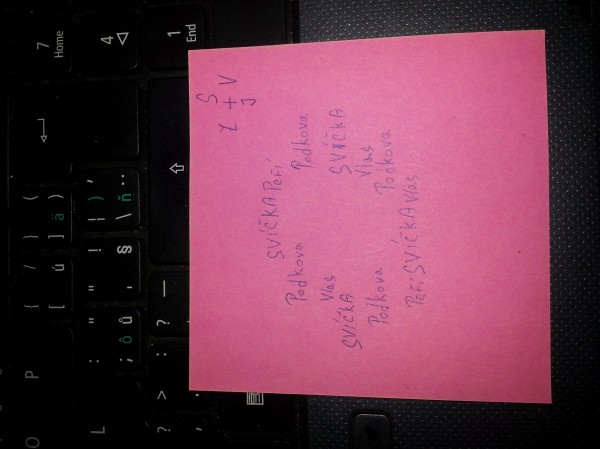 O
P
{ [
/ ú
} ] ä
( )
7
Home
L
: ; ô
" ů
! §
| ) '
\ ň ¨
4
> .
? :
_ -
1
End
S
Z + V
J
SVÍČKA Peří
Podkova Podkova
Vlas SVÍČKA
SVÍČKA Vlas
Podkova Podkova
Peří SVÍČKA Vlas